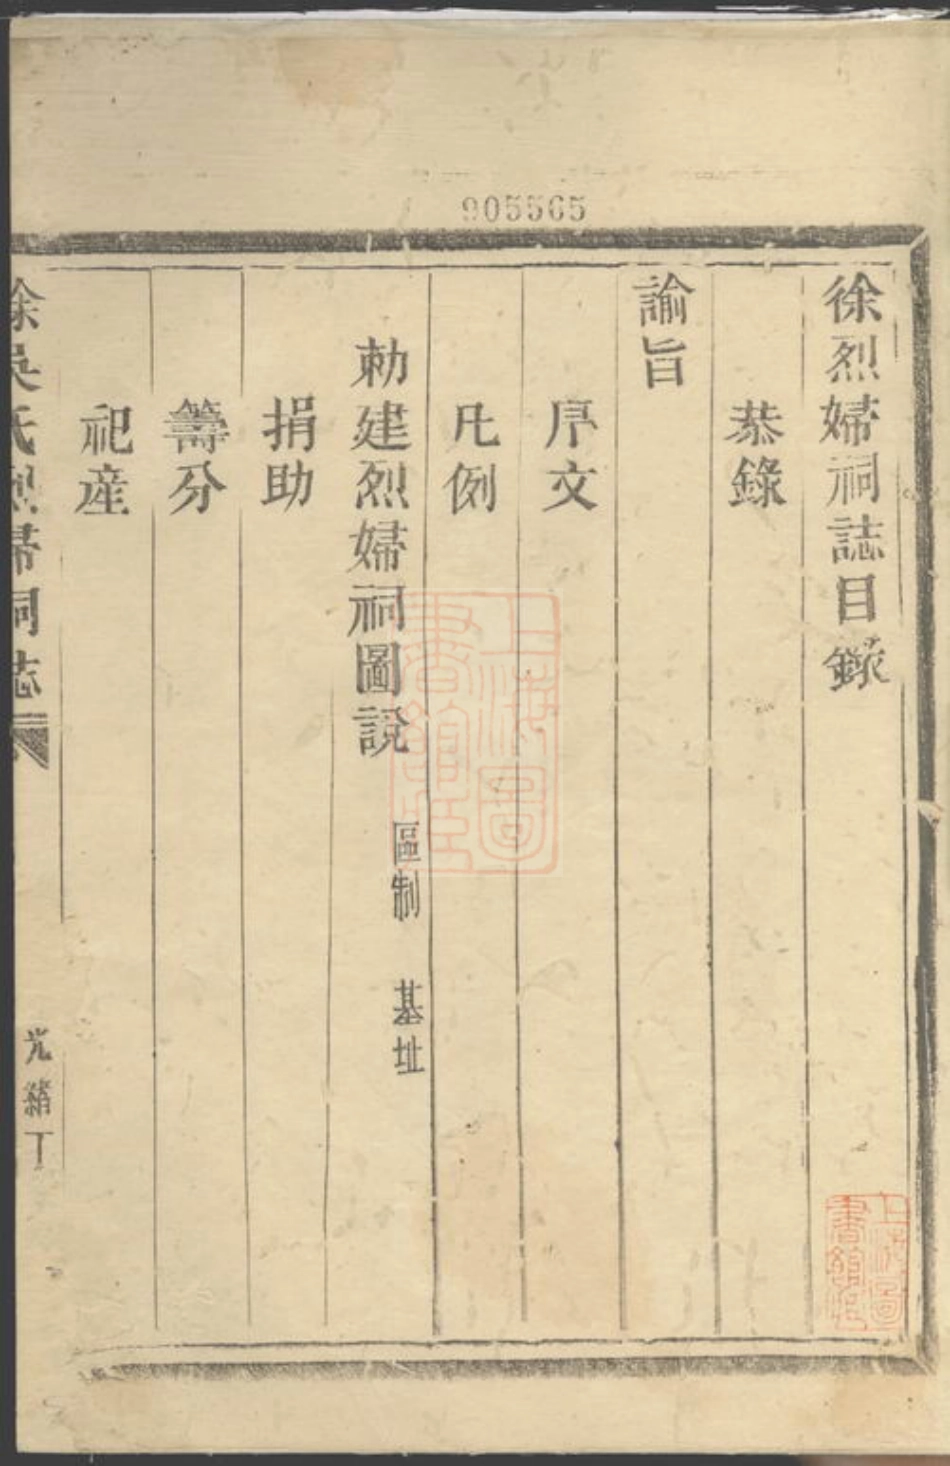 905565
徐烈婦祠誌目錄
恭錄
諭旨
序文
凡例
勅建烈婦祠圖說 區制 基址
捐助
籌分
祀産
徐吳氏烈婦祠誌
光緒丁
上海圖書館藏
上海圖書館藏